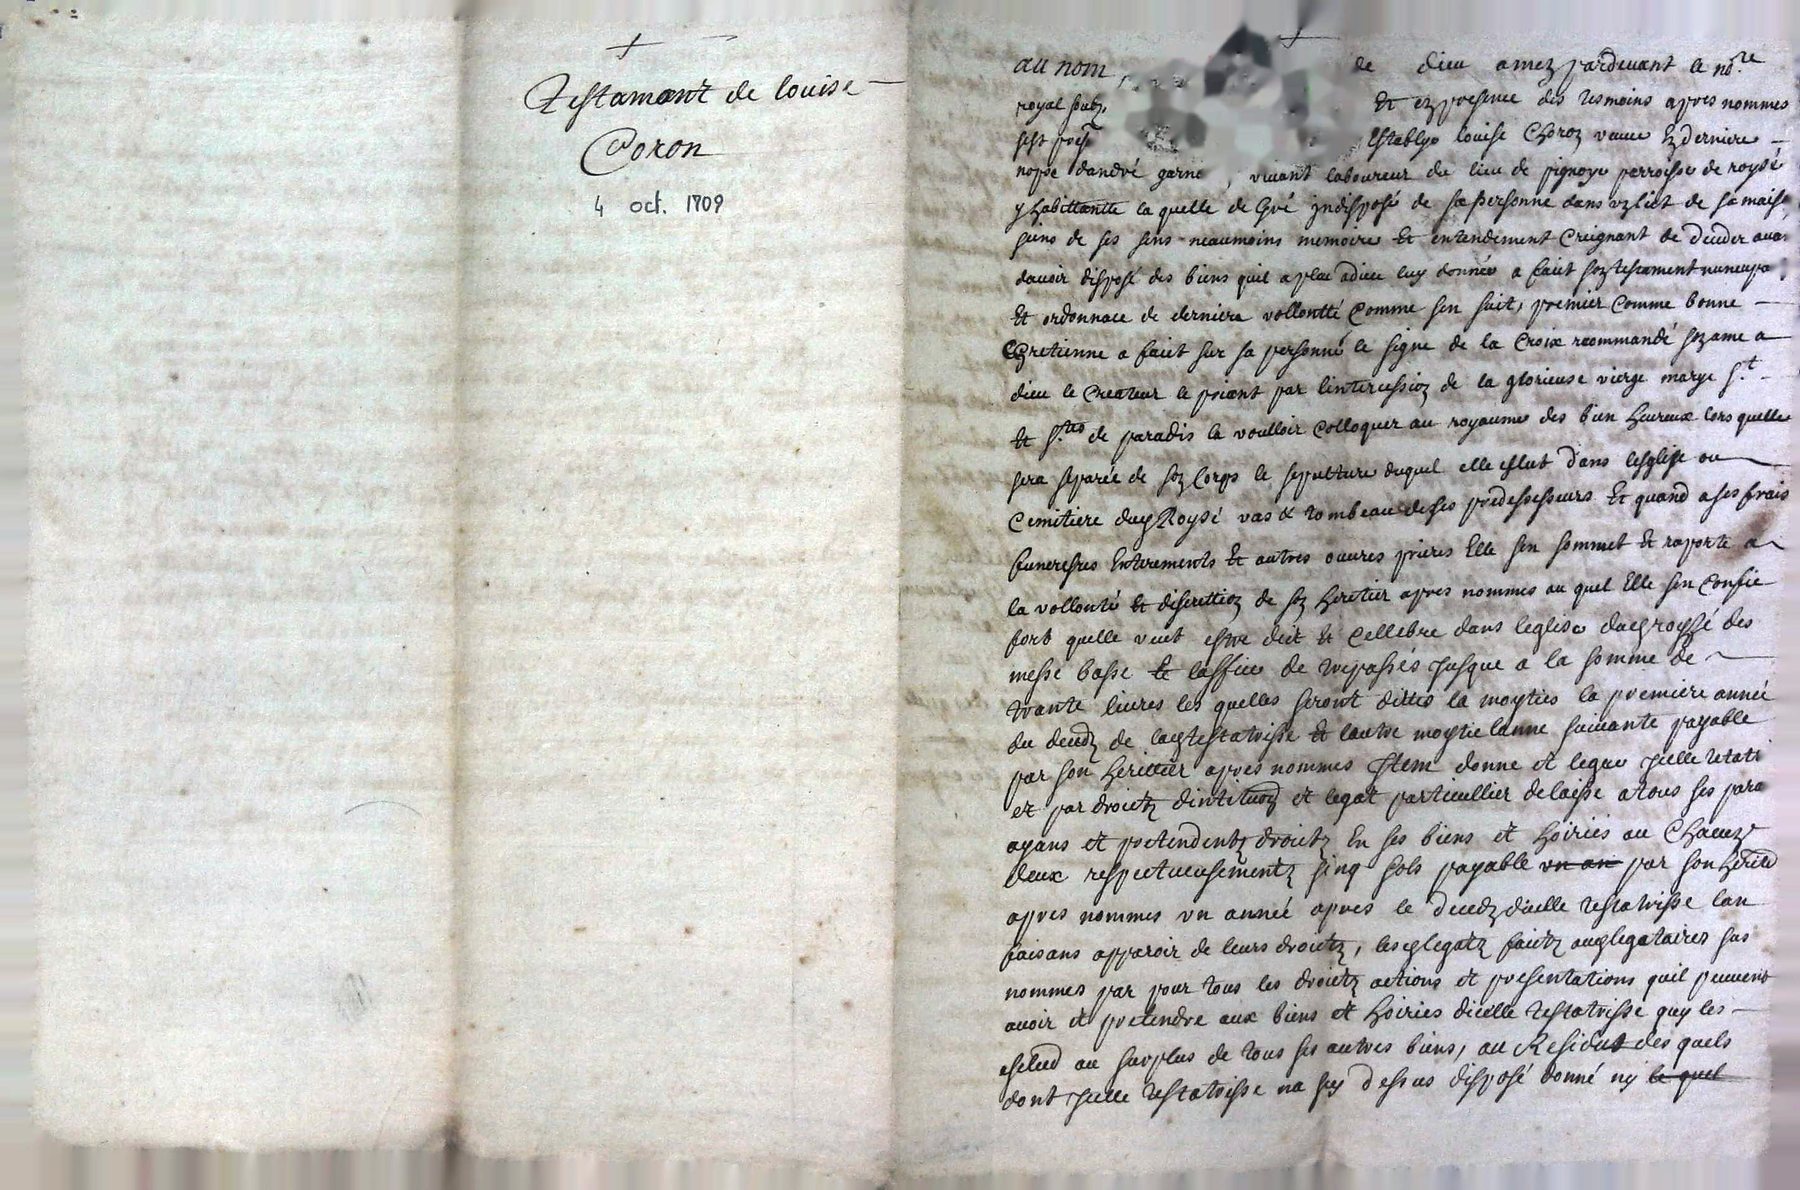 Testamant de louise
Coron
4 oct. 1709
au nom de dieu amez pardevant le nore
royal soubz Et ez presence des tesmoins apres nommes
sest pres establye louise Choroz veuve Ez derniere
nopse dandré garni, vivant laboureur du lieu de pignoye perroisse de roysé
y habittantte la quelle de gré yndisposé de sa personne dans vz lict de sa maiso
seins de ses sens neaumoins memoire Et entendement Creignant de deceder avan
davoir disposé des biens quil a pleu a dieu luy donnée a faict soz testament nuncupa
Et ordonnace de derniere vollontté Comme sen suit, premier Comme bonne
Cgretienne a faict sur sa personne le signe de la Croix recommandé soz ame a
dieu le Createur le priant par lintercessioz de la glorieuse vierge marye st
Et stes de paradis la voulloir Colloquer au royaume des bien heureux lors quelle
sera separée de soz Corps le sepulture duquel elle eslut dans lesglise ou
Cemitiere dud Roysé vas & tombeau de ses predessesseurs Et quand a ses frais
funeresres Enterements Et autres œuvres prieres Elle sen sommet Et raporte a
la vollonté Et discrettioz de sz heretier apres nommes au quel Elle sen Confie
fort quelle veut estre dict Et Cellebre dans leglise dud roysé des
messe basse le loffice de trepassés jusque a la somme de
trante livres les quelles seront dittes la moyties la premiere année
du decedz de lad testatrisse Et lautre moytie lanne suivante payable
par son herittier apres nommes Item donne et legue jcelle testatri
et par droictz dintitutioz et legat particullier delaisse a tous ses para
ayans et pretendentz droictz En ses biens et hoiries au Chacuz
deux respectueusementz sinq sols payable vn an par son heritié
apres nommes vn année apres le decedz dicelle testatrisse lan
faisans apparoir de leurs droictz, lesd legatz faictz aud legataires sus
nommes par pour tous les droictz actions et presentations quil peuvent
avoir et pretendre aux biens et hoiries dicelle testatrisse quy les
esclud au surplus de tous ses autres biens, au Residus des quels
dont jcelle testatrisse na sy dessus disposé donné ny le quel